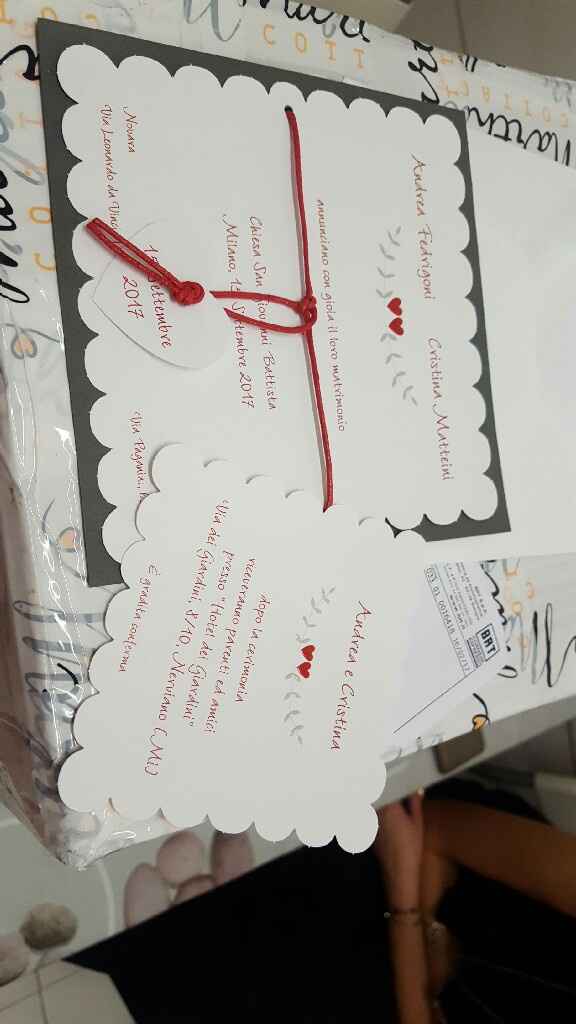 Andrea Fedrigoni
Cristina Matteini
annunciano con gioia il loro matrimonio
Chiesa San Giovanni Battista
Milano, 15 Settembre 2017
Settembre
2017
Novara
Via Leonardo da Vinci
Via Pagania
Andrea e Cristina
dopo la cerimonia
riceveranno parenti ed amici
presso "Hotel dei Giardini"
Via dei Giardini, 8/10, Nerviano (Mi)
È gradita conferma
BRT